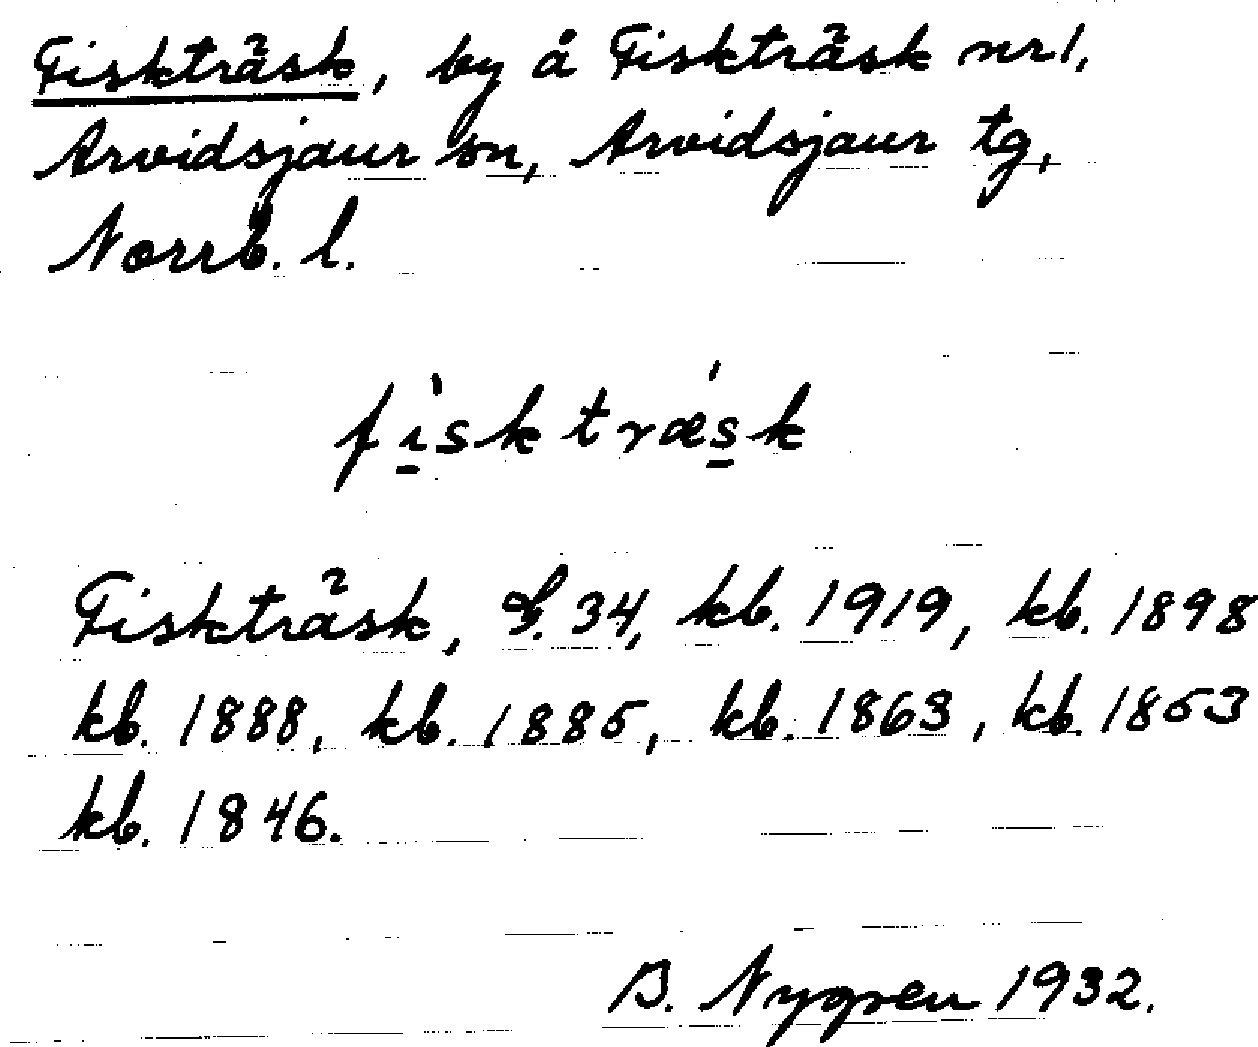 Fiskträsk, by å Fiskträsk nr 1,
Arvidsjaur sn, Arvidsjaur tg,
Norrb. l.
fìsktrǽsk
Fiskträsk, S. 34, kb. 1919, kb. 1898
kb. 1888, kb. 1885, kb. 1863, kb. 1853
kb. 1846.
B. Nygren 1932.